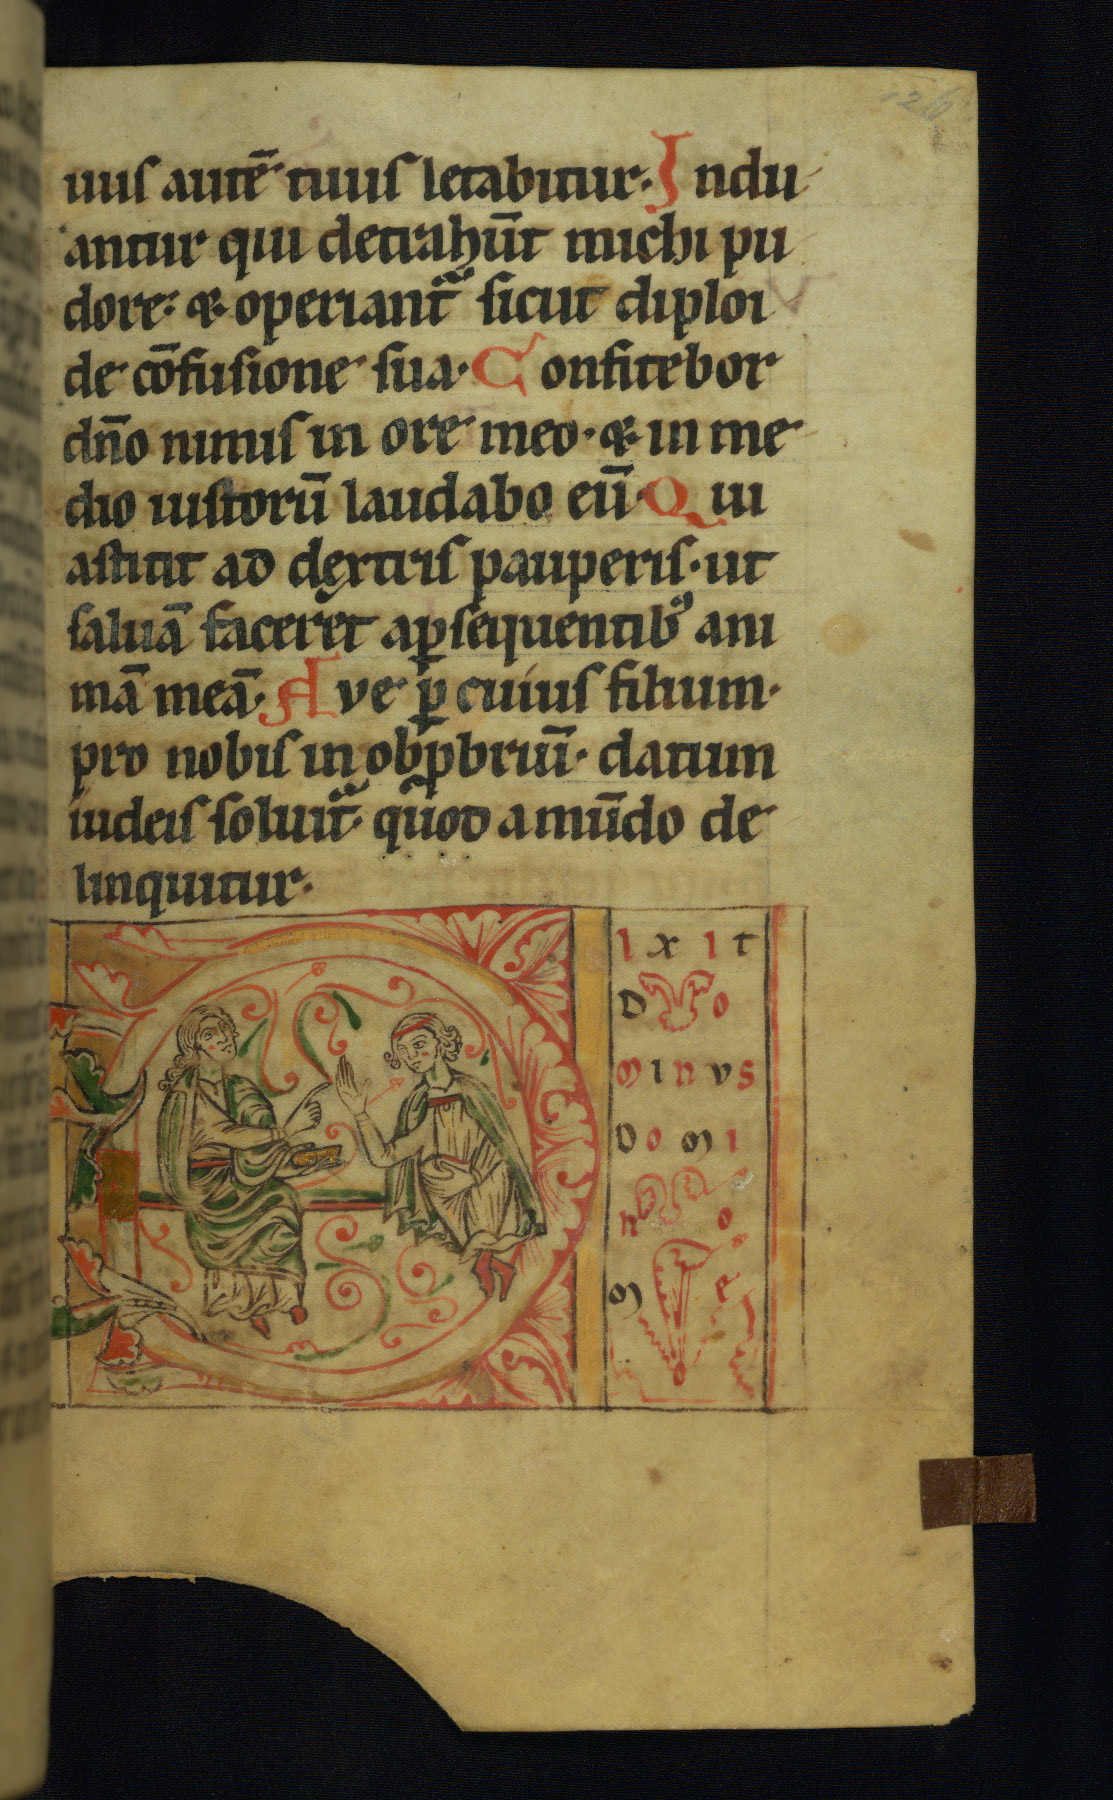 uus autē tuus letabitur. Indu
antur qui detrahūt michi pu
dore: & operiant᷑ sicut diploi
de cōfusione sua. Confitebor
dn̄o nimis in ore meo. & in me
dio iustorū laudabo eū. Qui
astitit ad dextris pauperis. ut
saluā faceret a ꝑsequentibꝰ ani
mā meā. Ave ꝑ cuius filium.
pro nobis in obꝓbriū. datum
iudeis soluit᷑ quod a mūdo de
linquitur.
IXIT
DO
MINVS
DOMI
NO
ME
126